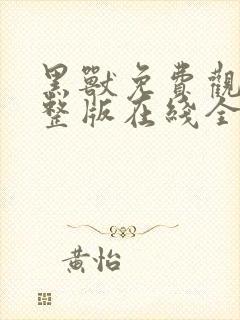 黑獸免費觀
整版在綫全
黄怡